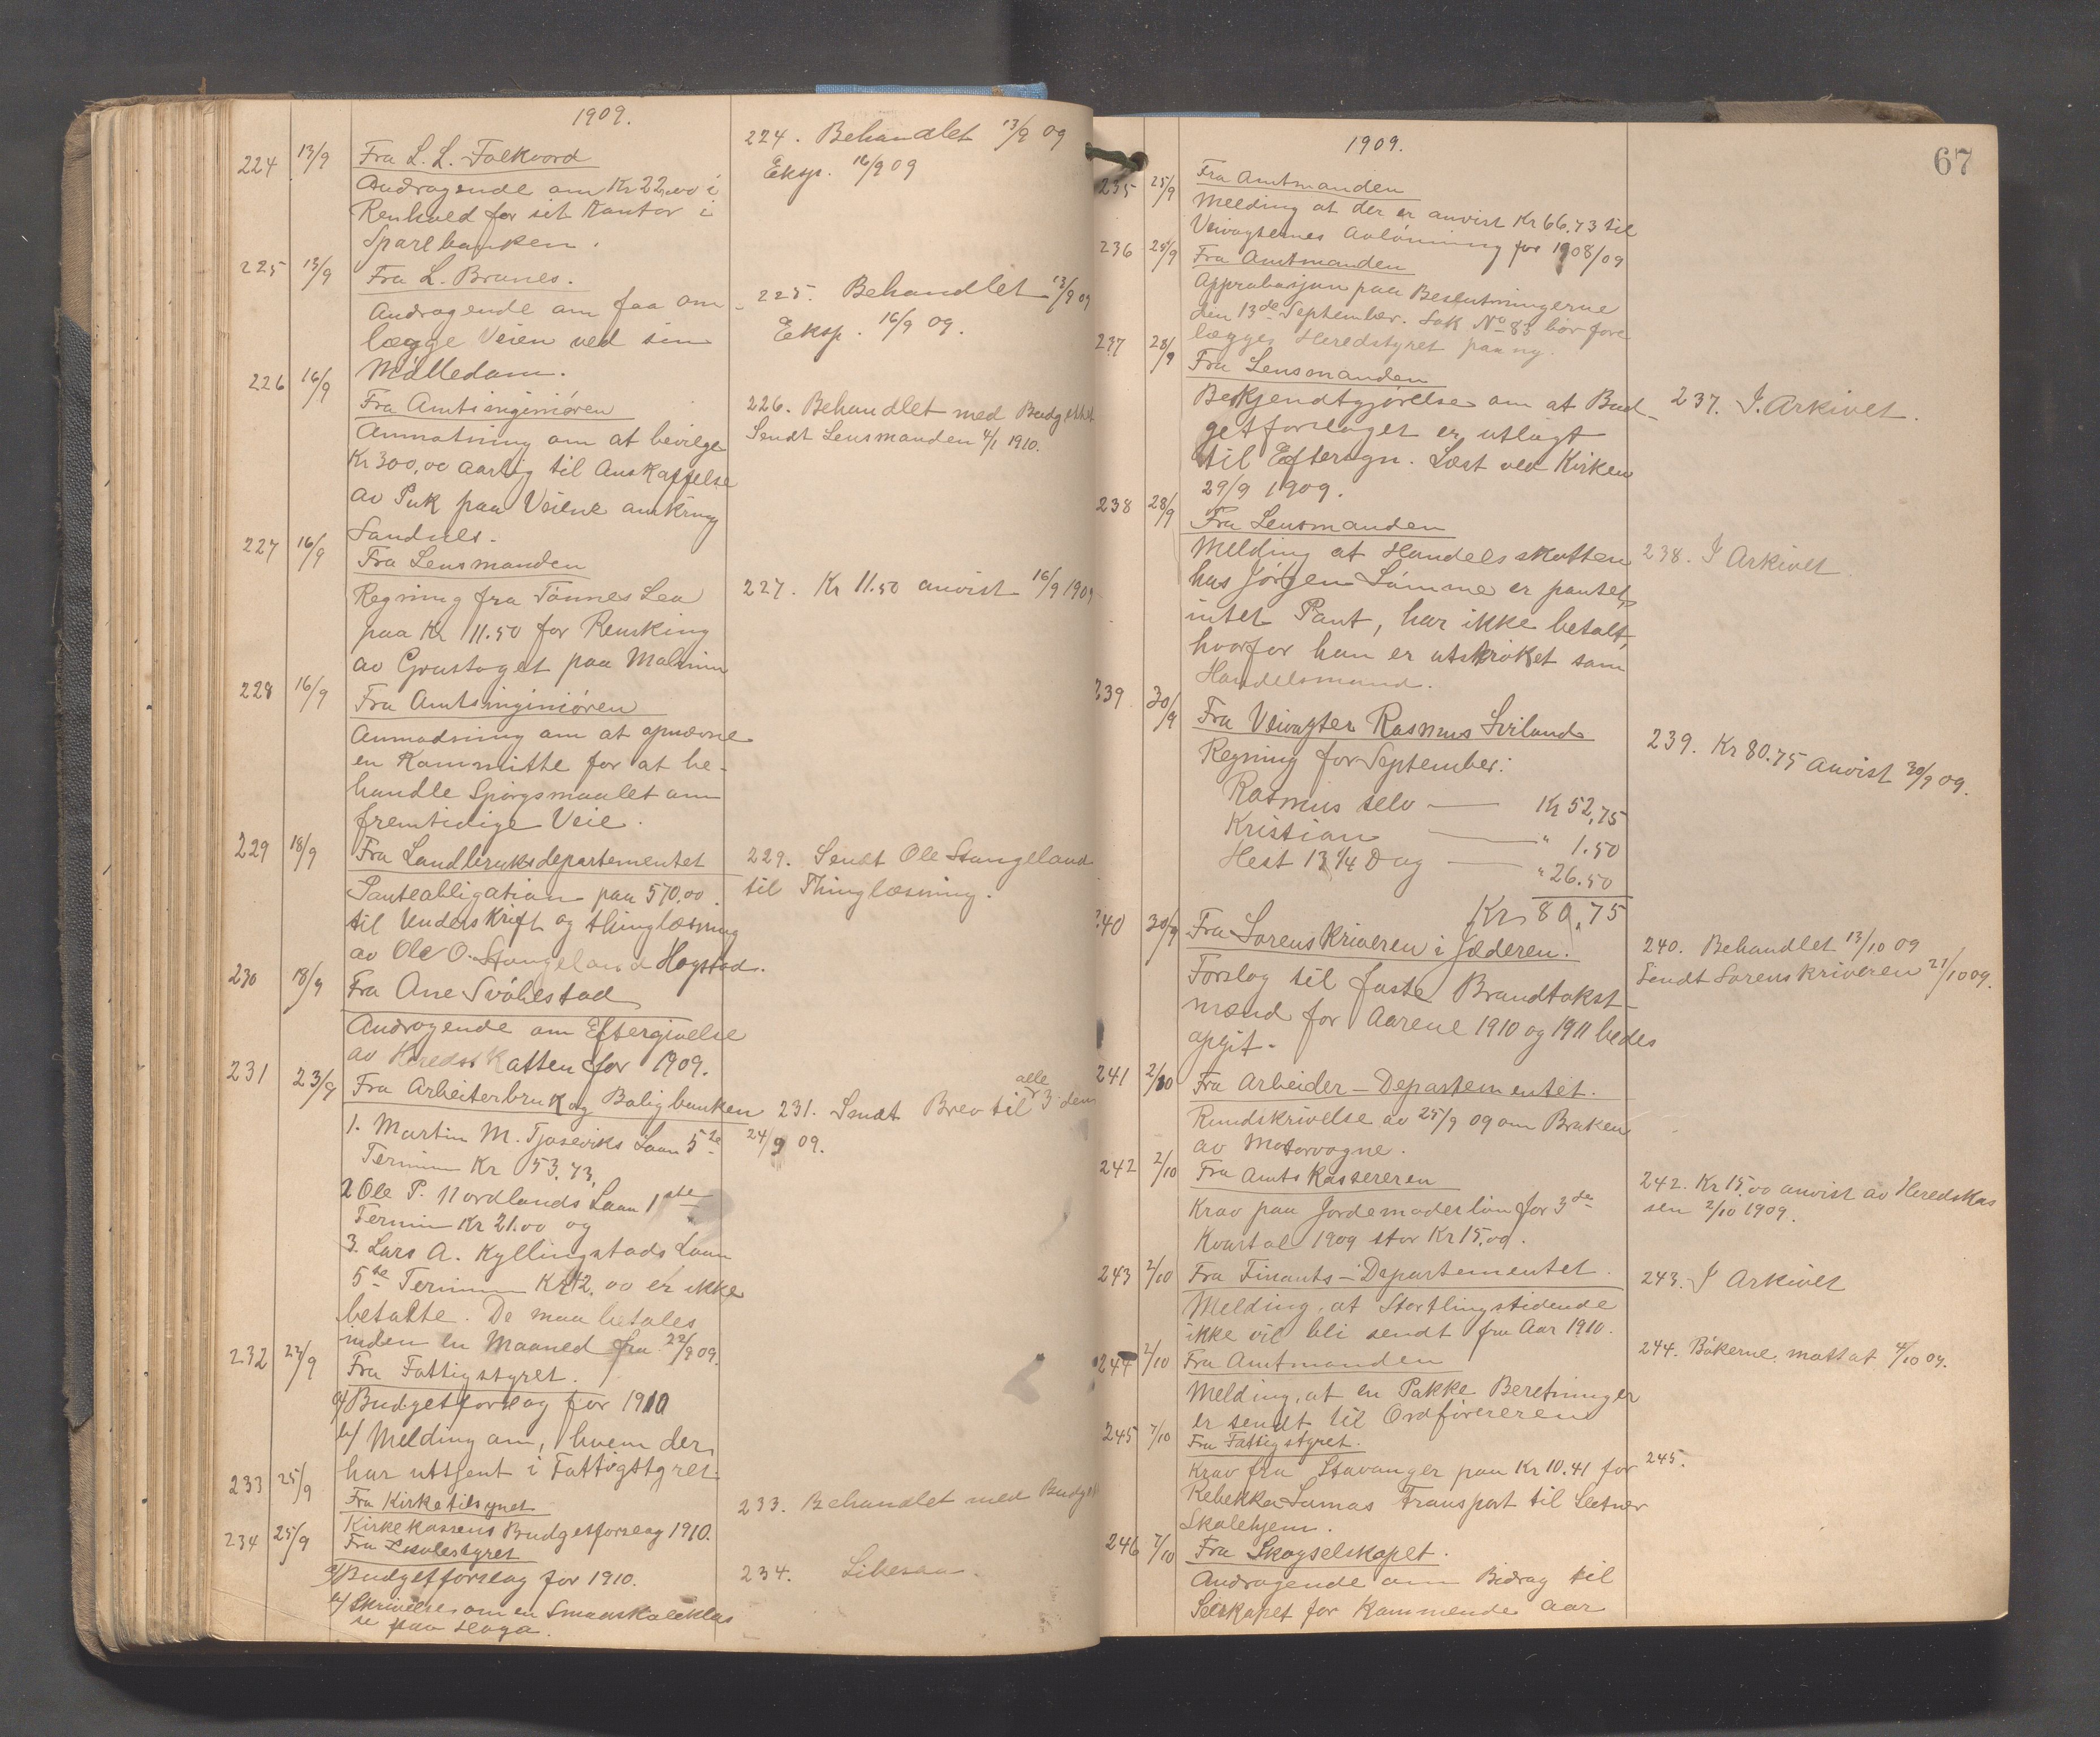 1909.
224 13/9 Fra L. L. Folkvord
Andragende om Kr 22,00 i
Renhold for sit Kontor i
Sparebanken.
224. Behandlet 13/9 09
Eksp. 16/9 09
225 13/9 Fra L. Brunes.
Andragende om faa om
lægge Veien ved sin
Mölledam.
225. Behandlet 13/9 09
Eksp. 16/9 09.
226 16/9 Fra Amtsingeniören
Anmodning om at bevilge
Kr 300,00 aarlig til Anskaffelse
av Puk paa Veiene omkring
Sandnes.
226. Behandlet med Budgettet
Sendt Lensmanden 4/1 1910.
227 16/9 Fra Lensmanden
Regning fra Tönnes Lea
paa Kr 11.50 for Rensking
av Grustaget paa Malmin
227. Kr 11.50 anvist 16/9 1909
228 16/9 Fra Amtsingeniören
Anmodning om at opnævne
en Kommitte for at be-
handle Spörgsmaalet om
fremtidige Veie.
229 18/9 Fra Landbruksdepartementet
Panteobligation paa 570,00.
til Underskrift og thinglæsning
av Ole O. Stangeland Hogstad.
229. Sendt Ole Stangeland
til Thinglæsning.
230 18/9 Fra Ane Svöhestad
Andragende om Eftergivelse
av Heredsskatten for 1909.
231 23/9 Fra Arbeiterbruk og Boligbanken
1. Martin M. Tjøseviks Laan 5te
Termin Kr 53,73,
2 Ole P. Nordlands Laan 1ste
Termin Kr 21.00 og
3. Lars A. Kyllingstads Laan
5te Termin Kr 42,00 er ikke
betalte. De maa betales
inden en Maaned fra 22/9 09.
231. Sendt Brev til alle 3 dem
24/9 09.
232 23/9 Fra Fattigstyret.
a/ Budgetforslag for 1910
b/ Melding om, hvem der
har uttjent i Fattigstyret
233 25/9 Fra Kirketilsynet
Kirkekassens Budgetforslag 1910.
233. Behandlet med Budget
234 25/9 Fra Skolestyret
a/ Budgetforslag for 1910.
b/ Skrivelse, om en Smaaskoleklas
se paa Hoga.
234. Likesaa.
67
1909.
235 25/9 Fra Amtmanden
Melding at der er anvist Kr 66.73 til
Veivogternes Avlönning for 1908/09
236 25/9 Fra Amtmanden
Approbasjon paa Beslutningerne
den 13de September. Sak No 83 bör fore
lægges Heredstyret paa ny.
237 28/9 Fra Lensmanden
Bekjendtgjörelse om at Bud-
getforslaget er utlagt
til Eftersyn. Læst ved Kirken
29/9 1909.
237. I Arkivet.
238 28/9 Fra Lensmanden
Melding at Handelsskatten
hos Jörgen Sömme er pantet,
intet Pant, har ikke betalt,
hvorfor han er utströket som
Handelsmand.
238. I Arkivet.
239 30/9 Fra Veivogter Rasmus Sviland
Regning for September:
Rasmus selv — Kr 52,75
Kristian — " 1.50
Hest 13 1/4 Dag — " 26.50
Kr 80,75
239. Kr 80.75 anvist 30/9 09.
240 30/9 Fra Sorenskriveren i Jæderen.
Forslag til faste Brandtakst-
mænd for Aarene 1910 og 1911 bedes
opgit.
240. Behandlet 13/10 09
Sendt Sorenskriveren 21/10 09.
241 2/10 Fra Arbeider-Departementet.
Rundskrivelse av 25/9 09 om Bruken
av Motorvogne.
242 2/10 Fra Amtskassereren
Krav paa Jordemoderlön for 3de
Kvartal 1909 stor Kr 15,00.
242. Kr 15,00 anvist av Heredskas
sen 2/10 1909.
243 2/10 Fra Finants-Departementet.
Melding, at Storthingstidende
ikke vil bli sendt fra Aar 1910.
243. I Arkivet
244 2/10 Fra Amtmanden
Melding, at en Pakke Beretninger
er sendt til Ordföreren
244. Bökerne mottat 4/10 09.
245 7/10 Fra Fattigstyret.
Krav fra Stavanger paa Kr 10.41 for
Rebekka Lunas Transport til Leitner
Skolehjem.
245.
246 7/10 Fra Skogselskapet.
Andragende om Bidrag til
Selskapet for kommende Aar